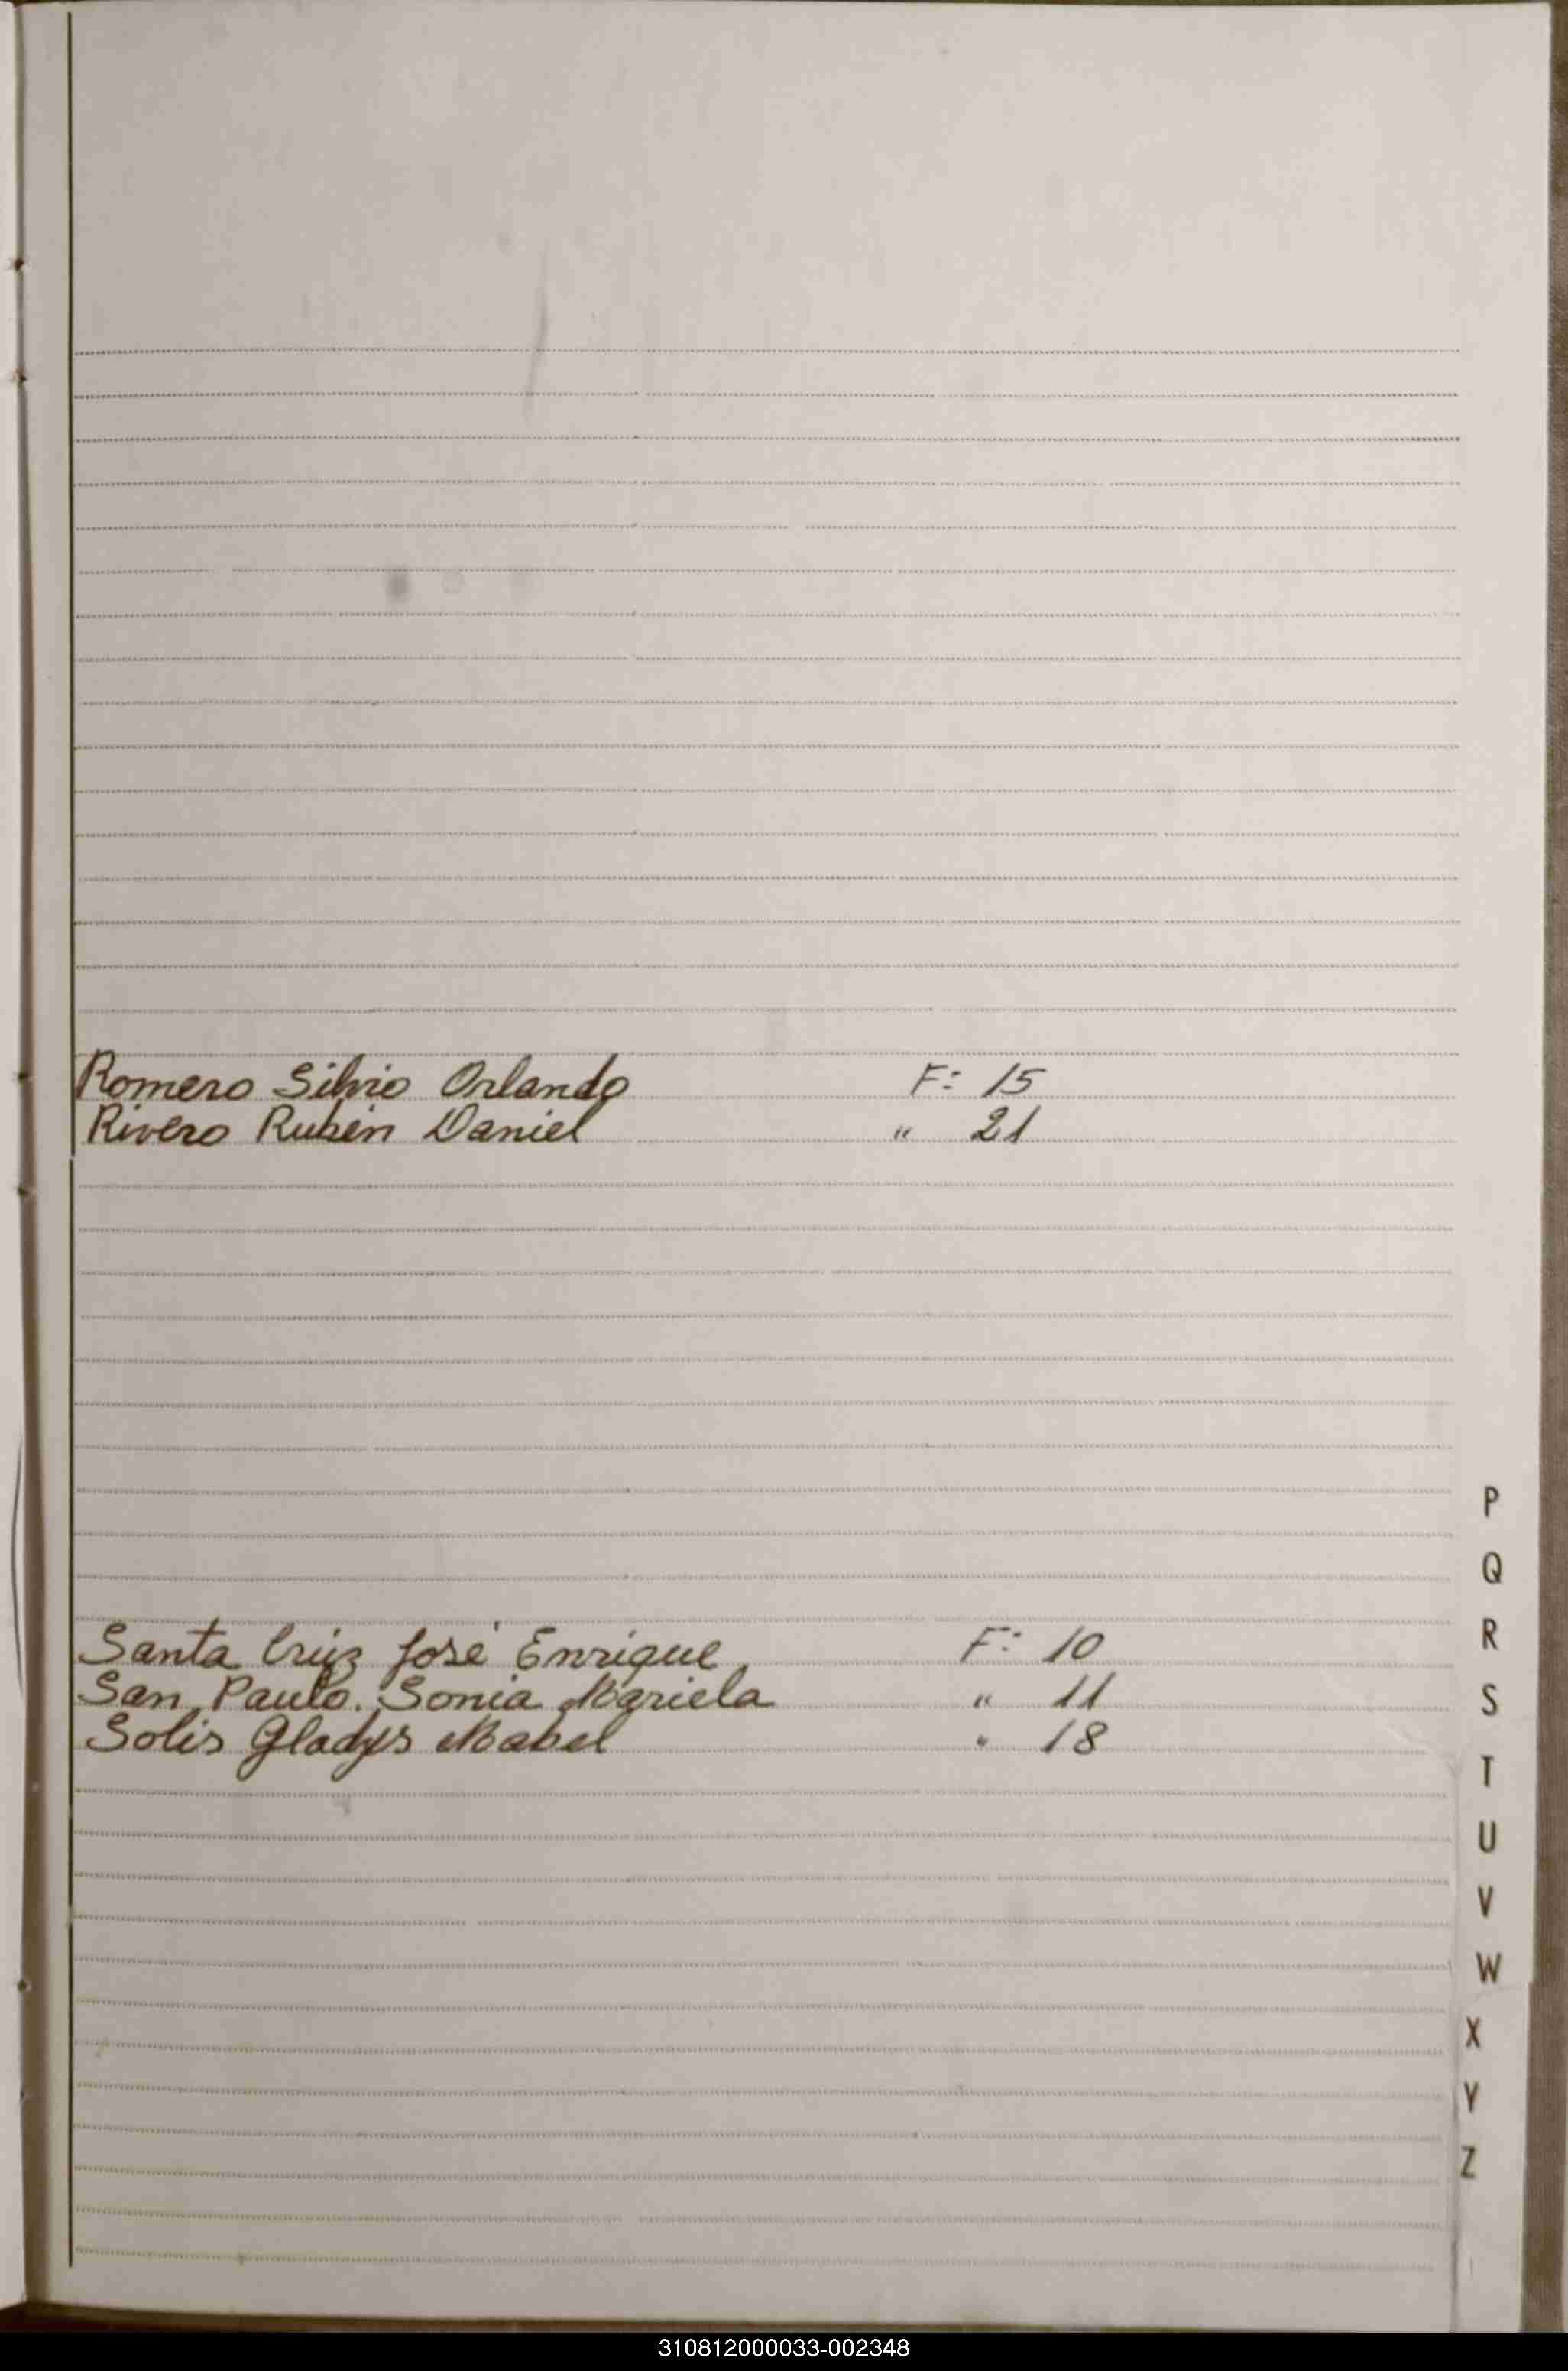 Romero Silvio Orlando F: 15
Rivero Rubén Daniel " 21
P
Q
Santa Cruz José Enrique F: 10
R
San Paulo. Sonia Mariela " 11
S
Solis Gladys Mabel " 18
T
U
V
W
X
Y
Z
310812000033-002348